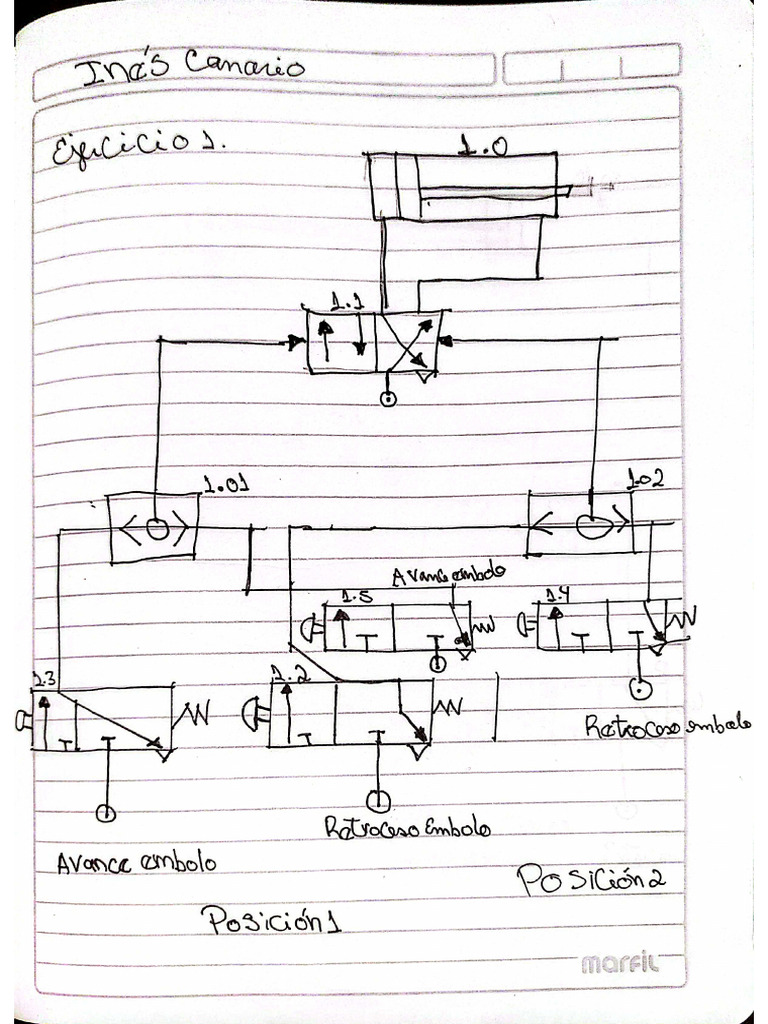 Inés Canario
Ejercicio 1.
1.0
1.1
1.01
1.02
Avance embolo
1.5
1.4
1.3
1.2
Retroceso embolo
Retroceso Embolo
Avance embolo
Posición 2
Posición 1
marfil